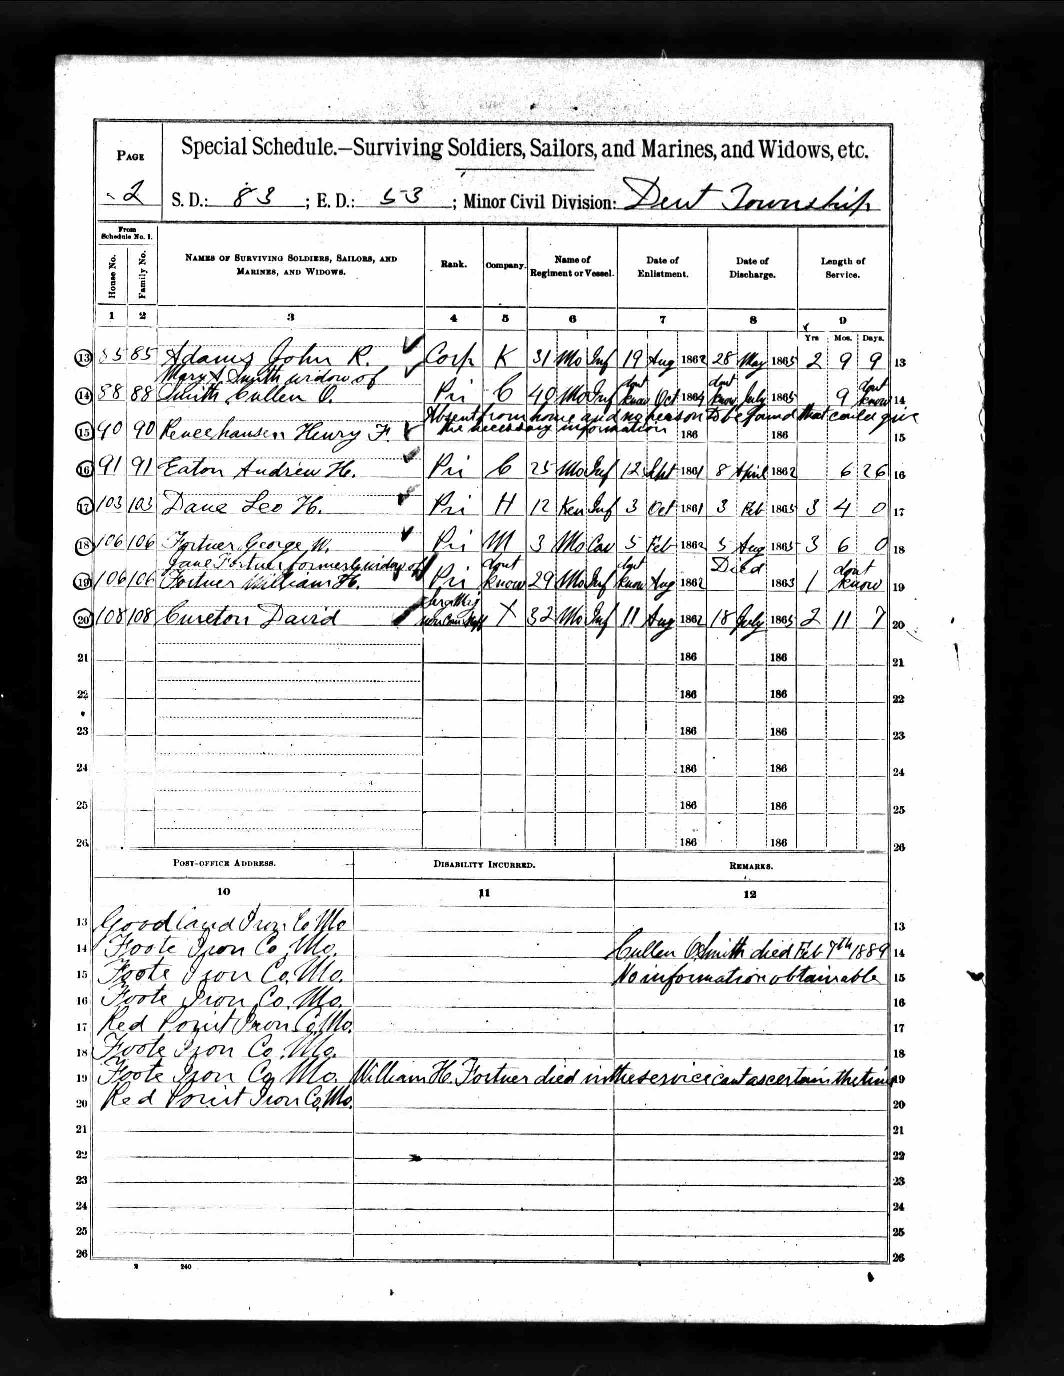 PAGE
2
Special Schedule.—Surviving Soldiers, Sailors, and Marines, and Widows, etc.
S. D.: 83 ; E. D.: 53 ; Minor Civil Division: Dent Township
From Schedule No. 1.
House No. Family No. NAMES OF SURVIVING SOLDIERS, SAILORS, AND MARINES, AND WIDOWS. Rank. Company. Name of Regiment or Vessel. Date of Enlistment. Date of Discharge. Length of Service.
1 2 3 4 5 6 7 8 9
Yrs Mos. Days.
13 85 85 Adams John R. Corp K 31 Mo Inf 19 Aug 1862 28 May 1865 2 9 9 13
Mary A Smith widow of
14 88 88 Smith Cullen O. Pri C 49 Mo Inf dont know Oct 1864 dont know July 1865 9 dont know 14
Absent from home and no person to be found that could give
the necessary information
15 90 90 Henry F 186 186 15
16 91 91 Eaton Andrew H. Pri C 25 Mo Inf 12 Sept 1861 8 April 1862 6 26 16
17 103 103 Dane Leo H. Pri H 12 Ken Inf 3 Oct 1861 3 Feb 1865 3 4 0 17
18 106 106 Fortner George W. Pri M 3 Mo Cav 5 Feb 1862 5 Aug 1865 3 6 0 18
Jane Fortner formerly widow of
19 106 106 Fortner William H. Pri dont know 29 Mo Inf dont know Aug 1862 Died 1863 1 dont know 19
20 108 108 Cureton David X 32 Mo Inf 11 Aug 1862 18 July 1865 2 11 7 20
21 186 186 21
22 186 186 22
23 186 186 23
24 186 186 24
25 186 186 25
26 186 186 26
POST-OFFICE ADDRESS. DISABILITY INCURRED. REMARKS.
10 11 12
13 Goodland Iron Co Mo 13
14 Foote Iron Co. Mo. Cullen O Smith died Feb 7th 1889 14
15 Foote Iron Co. Mo. No information obtainable 15
16 Foote Iron Co. Mo. 16
17 Red Point Iron Co Mo. 17
18 Foote Iron Co. Mo. 18
19 Foote Iron Co, Mo. William H. Fortner died in the service cant ascertain the time 19
20 Red Point Iron Co, Mo. 20
21 21
22 22
23 23
24 24
25 25
26 26
2 240